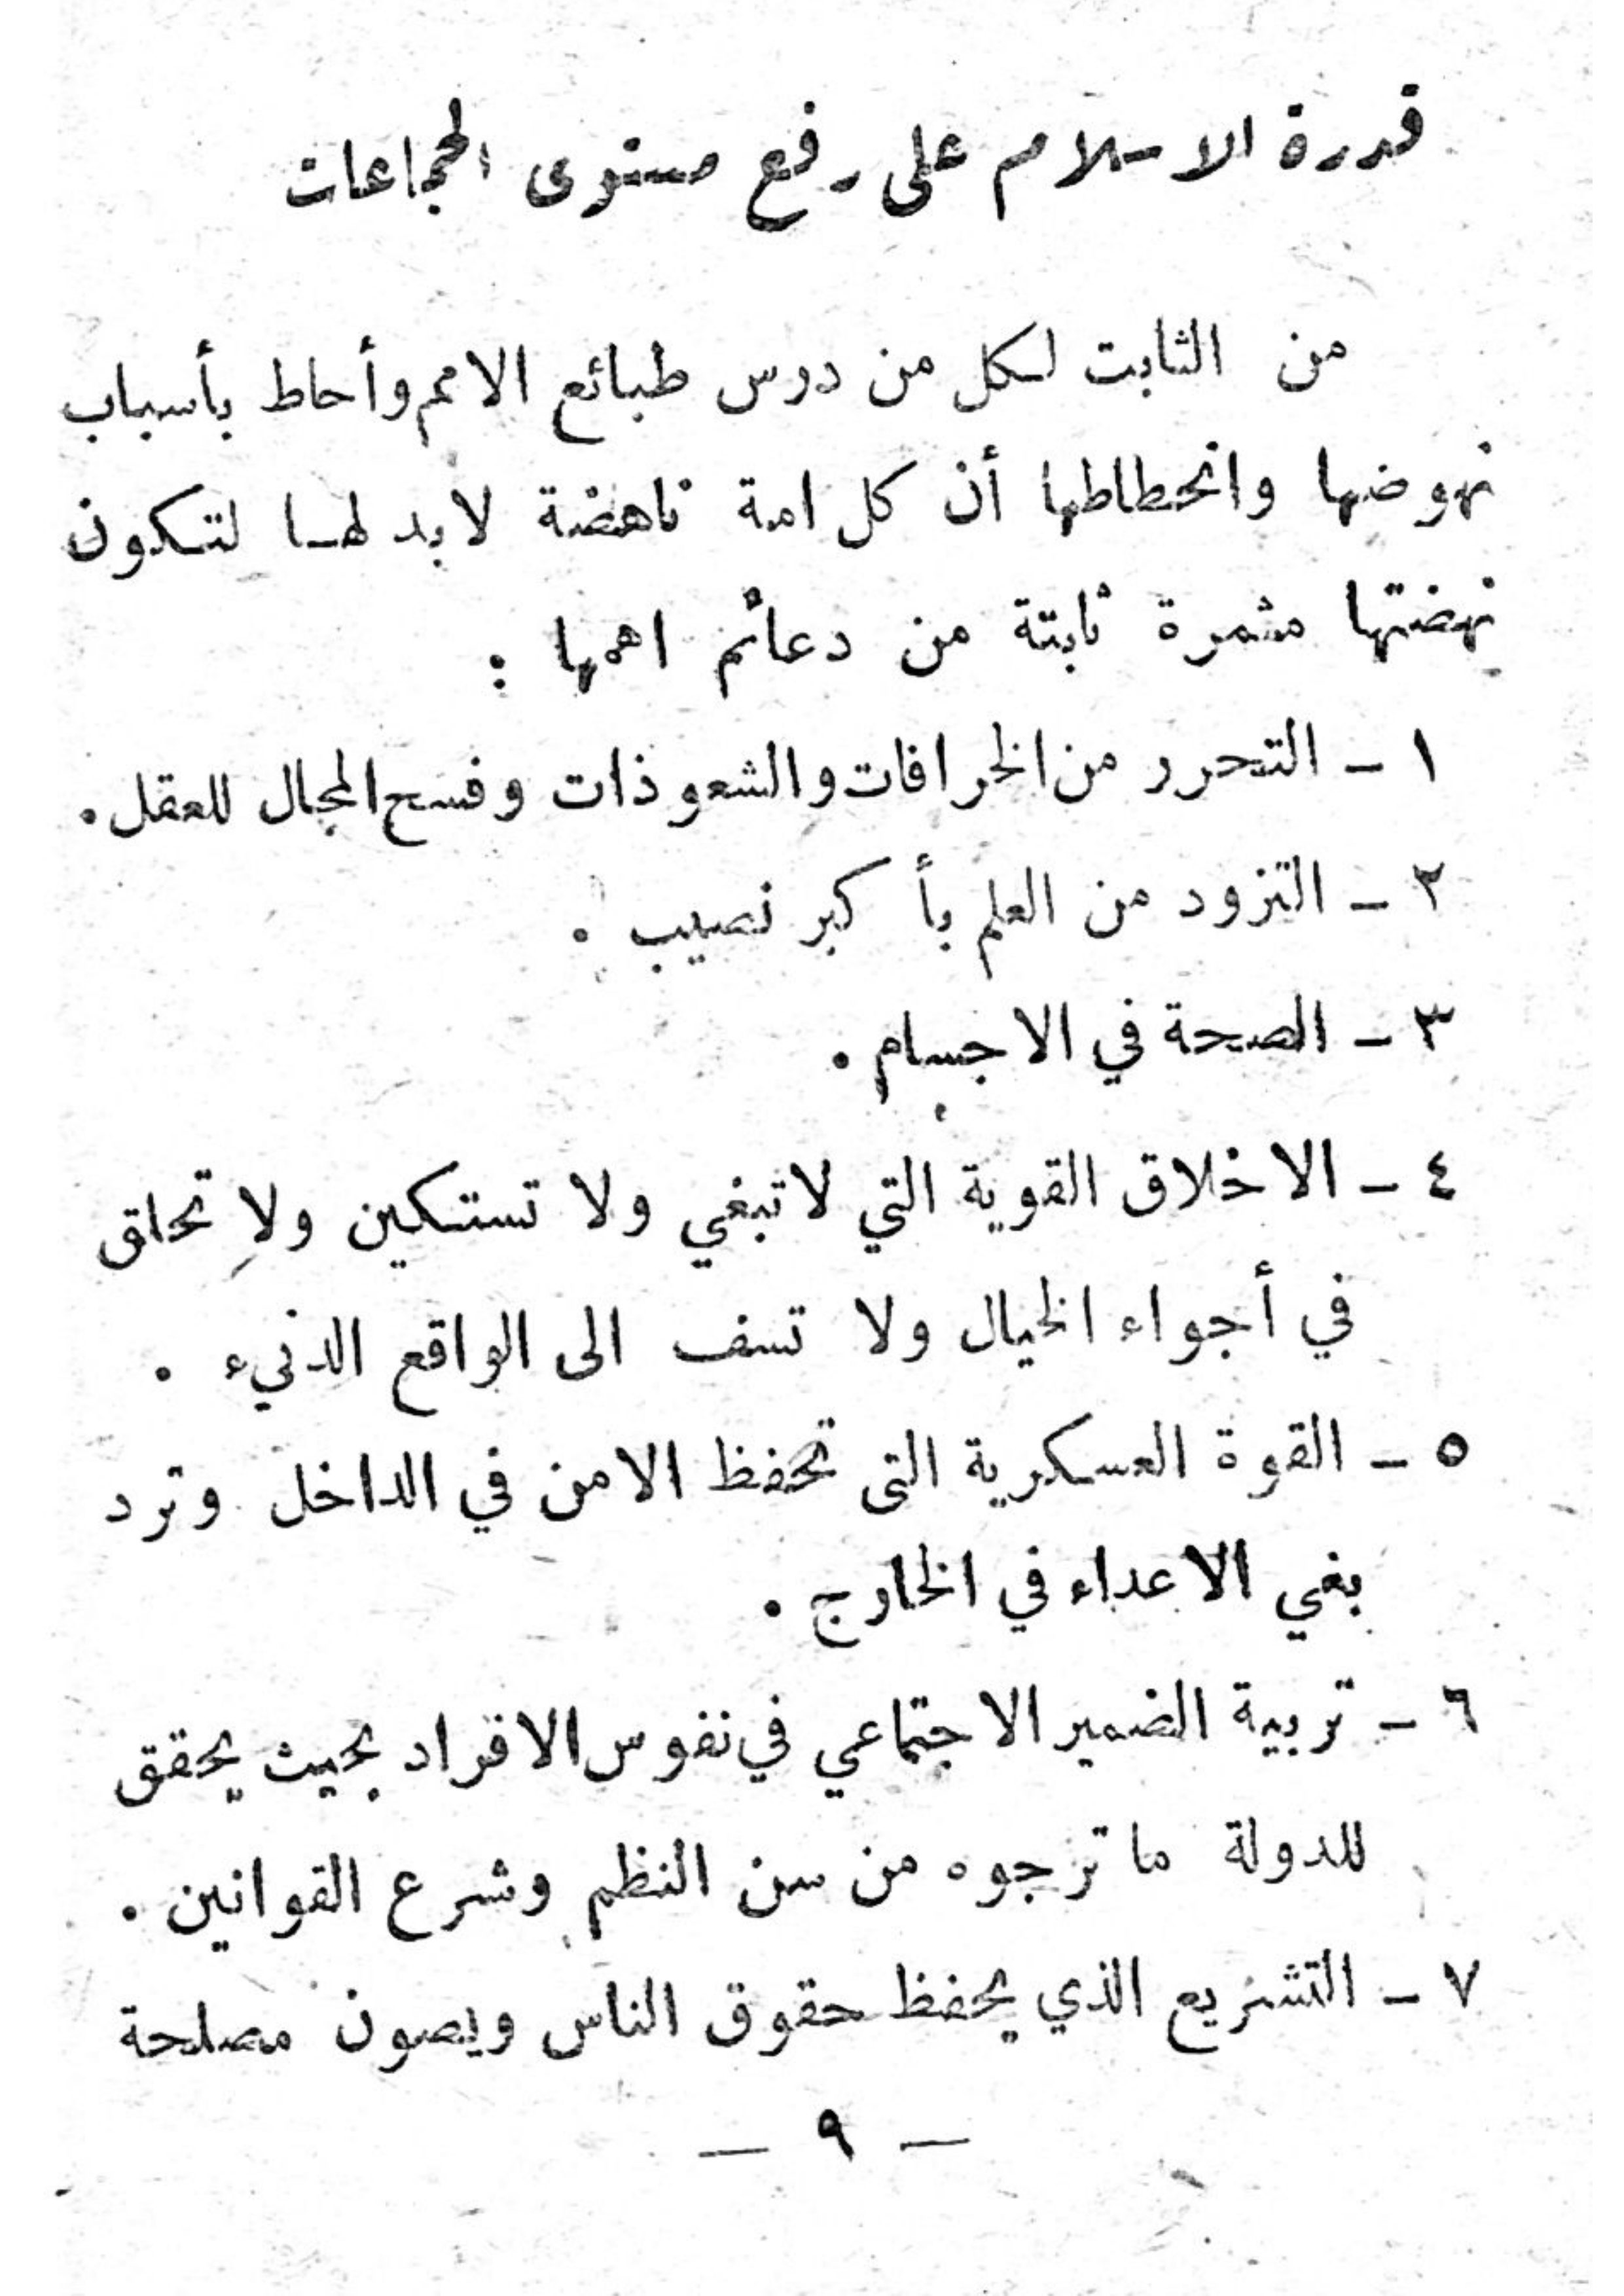 قدرة الاسلام على رفع مستوى الجماعات
من الثابت لكل من درس طبائع الامم وأحاط بأسباب
نهوضها وانحطاطها أن كل امة ناهضة لابد لها لتكون
نهضتها مثمرة ثابتة من دعائم اهمها :
١ - التحرر من الخرافات والشعوذات وفسح المجال للعقل .
٢ - التزود من العلم بأكبر نصيب .
٣ - الصحة في الاجسام .
٤ - الاخلاق القوية التي لا تبغي ولا تستكين ولا تحلق
في أجواء الخيال ولا تسف الى الواقع الدنيء .
٥ - القوة العسكرية التى تحفظ الامن في الداخل وترد
بغي الاعداء في الخارج .
٦ - تربية الضمير الاجتماعي في نفوس الافراد بحيث يحقق
للدولة ما ترجوه من سن النظم وشرع القوانين .
٧ - التشريع الذي يحفظ حقوق الناس ويصون مصلحة
— ٩ —